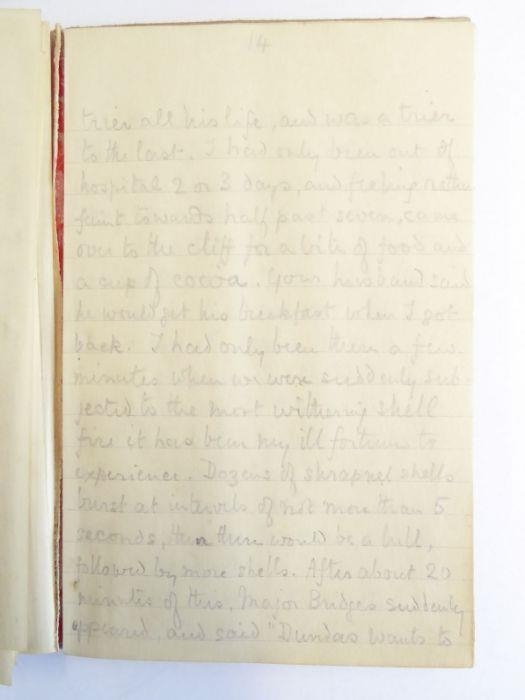 14
trier all his life, and was a trier
to the last. I had only been out of
hospital 2 or 3 days, and feeling rather
faint towards half past seven, came
over to the cliff for a bite of food and
a cup of cocoa. Your husband said
he would get his breakfast when I got
back. I had only been there a few
minutes when we were suddenly sub-
jected to the most withering shell
fire it has been my ill fortune to
experience. Dozens of shrapnel shells
burst at intervals of not more than 5
seconds, then there would be a lull,
followed by more shells. After about 20
minutes of this, Major Bridges suddenly
appeared, and said "Dundas wants to